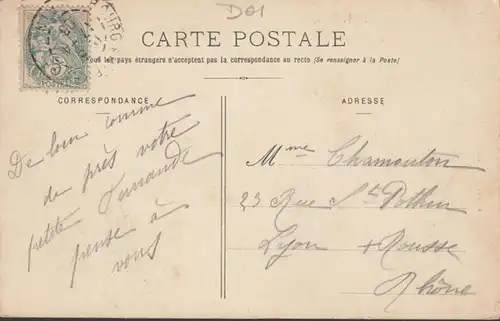 D01
CARTE POSTALE
Tous les pays étrangers n'acceptent pas la correspondance au recto (Se renseigner à la Poste)
CORRESPONDANCE
De loin comme
de près votre
petite Fernande
pense à
vous
ADRESSE
Mme Chamonton
23 Rue St Pothin
Lyon + Rousse
Rhône